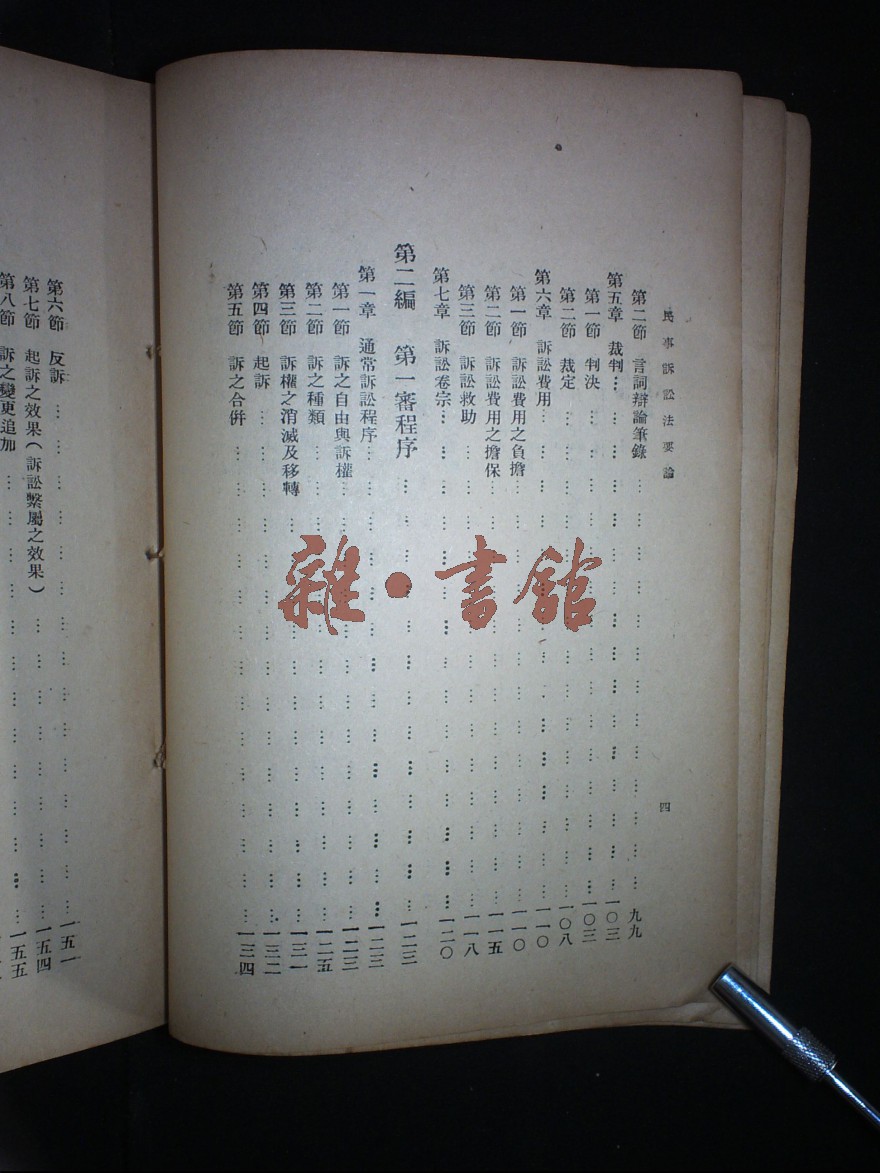 民事訴訟法要論
四
第二節 言詞辯論筆錄 九九
第五章 裁判 一〇三
第一節 判決 一〇三
第二節 裁定 一〇八
第六章 訴訟費用 一一〇
第一節 訴訟費用之負擔 一一〇
第二節 訴訟費用之擔保 一一五
第三節 訴訟救助 一一八
第七章 訴訟卷宗 一二〇
第二編 第一審程序 一二三
第一章 通常訴訟程序 一二三
第一節 訴之自由與訴權 一二三
第二節 訴之種類 一二五
第三節 訴權之消滅及移轉 一三一
第四節 起訴 一三二
第五節 訴之合併 一三四
第六節 反訴 一五一
第七節 起訴之效果(訴訟繫屬之效果) 一五四
第八節 訴之變更追加 一五五
雜·書館